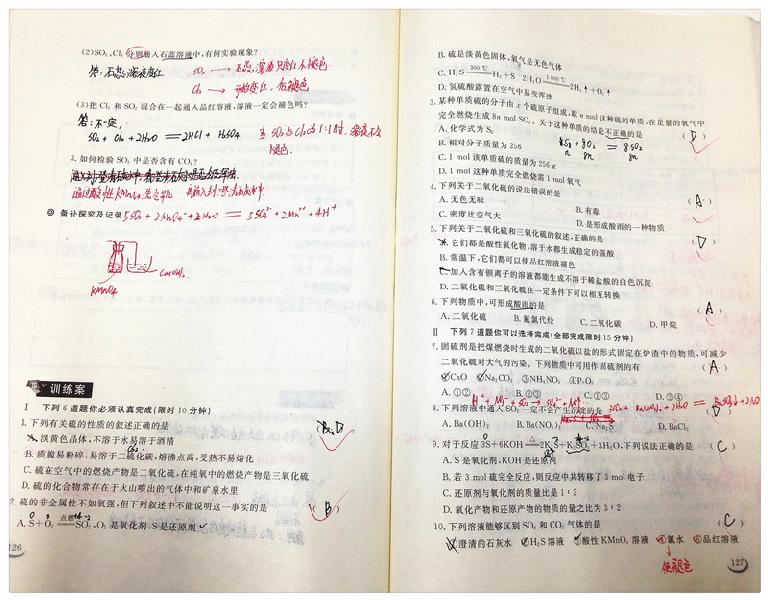 (2)SO₂、Cl₂ 分别通入石蕊溶液中,有何实验现象?
答:石蕊溶液变红
SO₂ → 石蕊溶液只变红不褪色
Cl₂ → 先变红,后褪色
(3)把 Cl₂ 和 SO₂ 混合在一起通入品红溶液,溶液一定会褪色吗?
答:不一定,
SO₂ + Cl₂ + 2H₂O = 2HCl + H₂SO₄
当 SO₂与Cl₂为1:1时,溶液不会
褪色.
3. 如何检验 SO₂ 中是否含有 CO₂?
通过酸性KMnO₄ 再通入到澄清石灰水中
◎ 备补探究及记录
5SO₂ + 2MnO₄⁻ + 2H₂O = 5SO₄²⁻ + 2Mn²⁺ + 4H⁺
Ca(OH)₂
KMnO₄
训练案
Ⅰ 下列 6 道题你必须认真完成(限时 10 分钟)
1. 下列有关硫的性质的叙述正确的是
B,D
A. 淡黄色晶体,不溶于水易溶于酒精
B. 质脆易粉碎,易溶于二硫化碳,熔沸点高,受热不易熔化
C. 硫在空气中的燃烧产物是二氧化硫,在纯氧中的燃烧产物是三氧化硫
D. 硫的化合物常存在于火山喷出的气体中和矿泉水里
2. 硫的非金属性不如氧强,但下列叙述中不能说明这一事实的是 ( B )
A. S+O₂ 点燃 SO₂,O₂ 是氧化剂,S 是还原剂
126
B. 硫是淡黄色固体,氧气是无色气体
C. H₂S 300℃ H₂+S 2H₂O 1000℃ 2H₂↑+O₂↑
D. 氢硫酸露置在空气中易变浑浊
3. 某种单质硫的分子由 x 个硫原子组成,取 n mol 这种硫的单质,在足量的氧气中
完全燃烧生成 8n mol SO₂。关于这种单质的结论不正确的是 ( D )
A. 化学式为 S₈
S₈ + 8O₂ = 8SO₂
n 8n 8n
B. 相对分子质量为 256
C. 1 mol 该单质硫的质量为 256 g
D. 1 mol 这种单质完全燃烧需 1 mol 氧气
4. 下列关于二氧化硫的说法错误的是 ( A )
A. 无色无味 B. 有毒
C. 密度比空气大 D. 是形成酸雨的一种物质
5. 下列关于二氧化硫和三氧化硫的叙述,正确的是 ( D )
A. 它们都是酸性氧化物,溶于水都生成稳定的强酸
B. 常温下,它们都可以使品红溶液褪色
C. 加入含有钡离子的溶液都能生成不溶于稀盐酸的白色沉淀
D. 二氧化硫和三氧化硫在一定条件下可以相互转换
6. 下列物质中,可形成酸雨的是 ( A )
A. 二氧化硫 B. 氟氯代烃 C. 二氧化碳 D. 甲烷
Ⅱ 下列 7 道题你可以选择完成(全部完成限时 15 分钟)
7. 固硫剂是把煤燃烧时生成的二氧化硫以盐的形式固定在炉渣中的物质,可减少
二氧化硫对大气的污染。下列物质中可用作固硫剂的有 ( A )
①CaO ②Na₂CO₃ ③NH₄NO₃ ④P₂O₅
A. ①② B. ②③ C. ①③ D. ③④
8. 下列溶液中通入SO₂一定不会产生沉淀的是 ( D )
A. Ba(OH)₂ B. Ba(NO₃)₂ C. Na₂S D. BaCl₂
9. 对于反应 3S+6KOH △ 2K₂S+K₂SO₃+3H₂O,下列说法正确的是 ( C )
A. S 是氧化剂,KOH 是还原剂
B. 若 3 mol 硫完全反应,则反应中共转移了 3 mol 电子
C. 还原剂与氧化剂的质量比是 1∶2
D. 氧化产物和还原产物的物质的量之比为 3∶2
10. 下列溶液能够区别 SO₂ 和 CO₂ 气体的是 ( C )
①澄清的石灰水 ②H₂S 溶液 ③酸性 KMnO₄ 溶液 ④氯水 ⑤品红溶液
使褪色
127